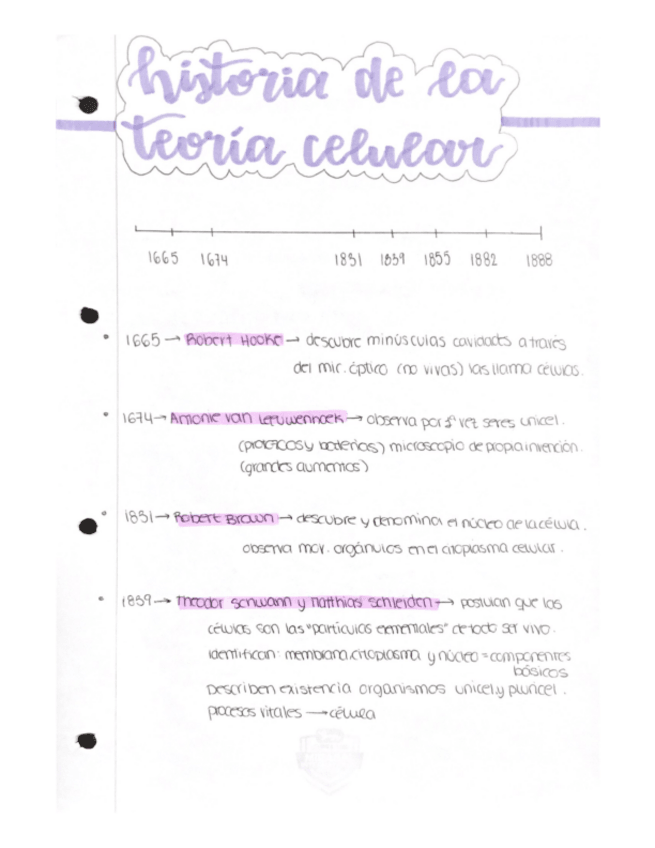 historia de la
teoría celular
1665 1674 1831 1839 1855 1882 1888
• 1665 → Robert Hooke → descubre minúsculas cavidades a través
del mic. óptico (no vivas) las llama células.
• 1674 → Antonie van Leeuwenhoek → observa por 1ª vez seres unicel.
(protozoos y bacterias) microscopio de propia invención.
(grandes aumentos)
• 1831 → Robert Brown → descubre y denomina el núcleo de la célula.
observa mov. orgánulos en el citoplasma celular.
• 1839 → Theodor Schwann y Matthias Schleiden → postulan que las
células son las "partículas elementales" de todo ser vivo.
Identifican: membrana, citoplasma y núcleo = componentes
básicos
Describen existencia organismos unicel. y pluricel.
procesos vitales → célula